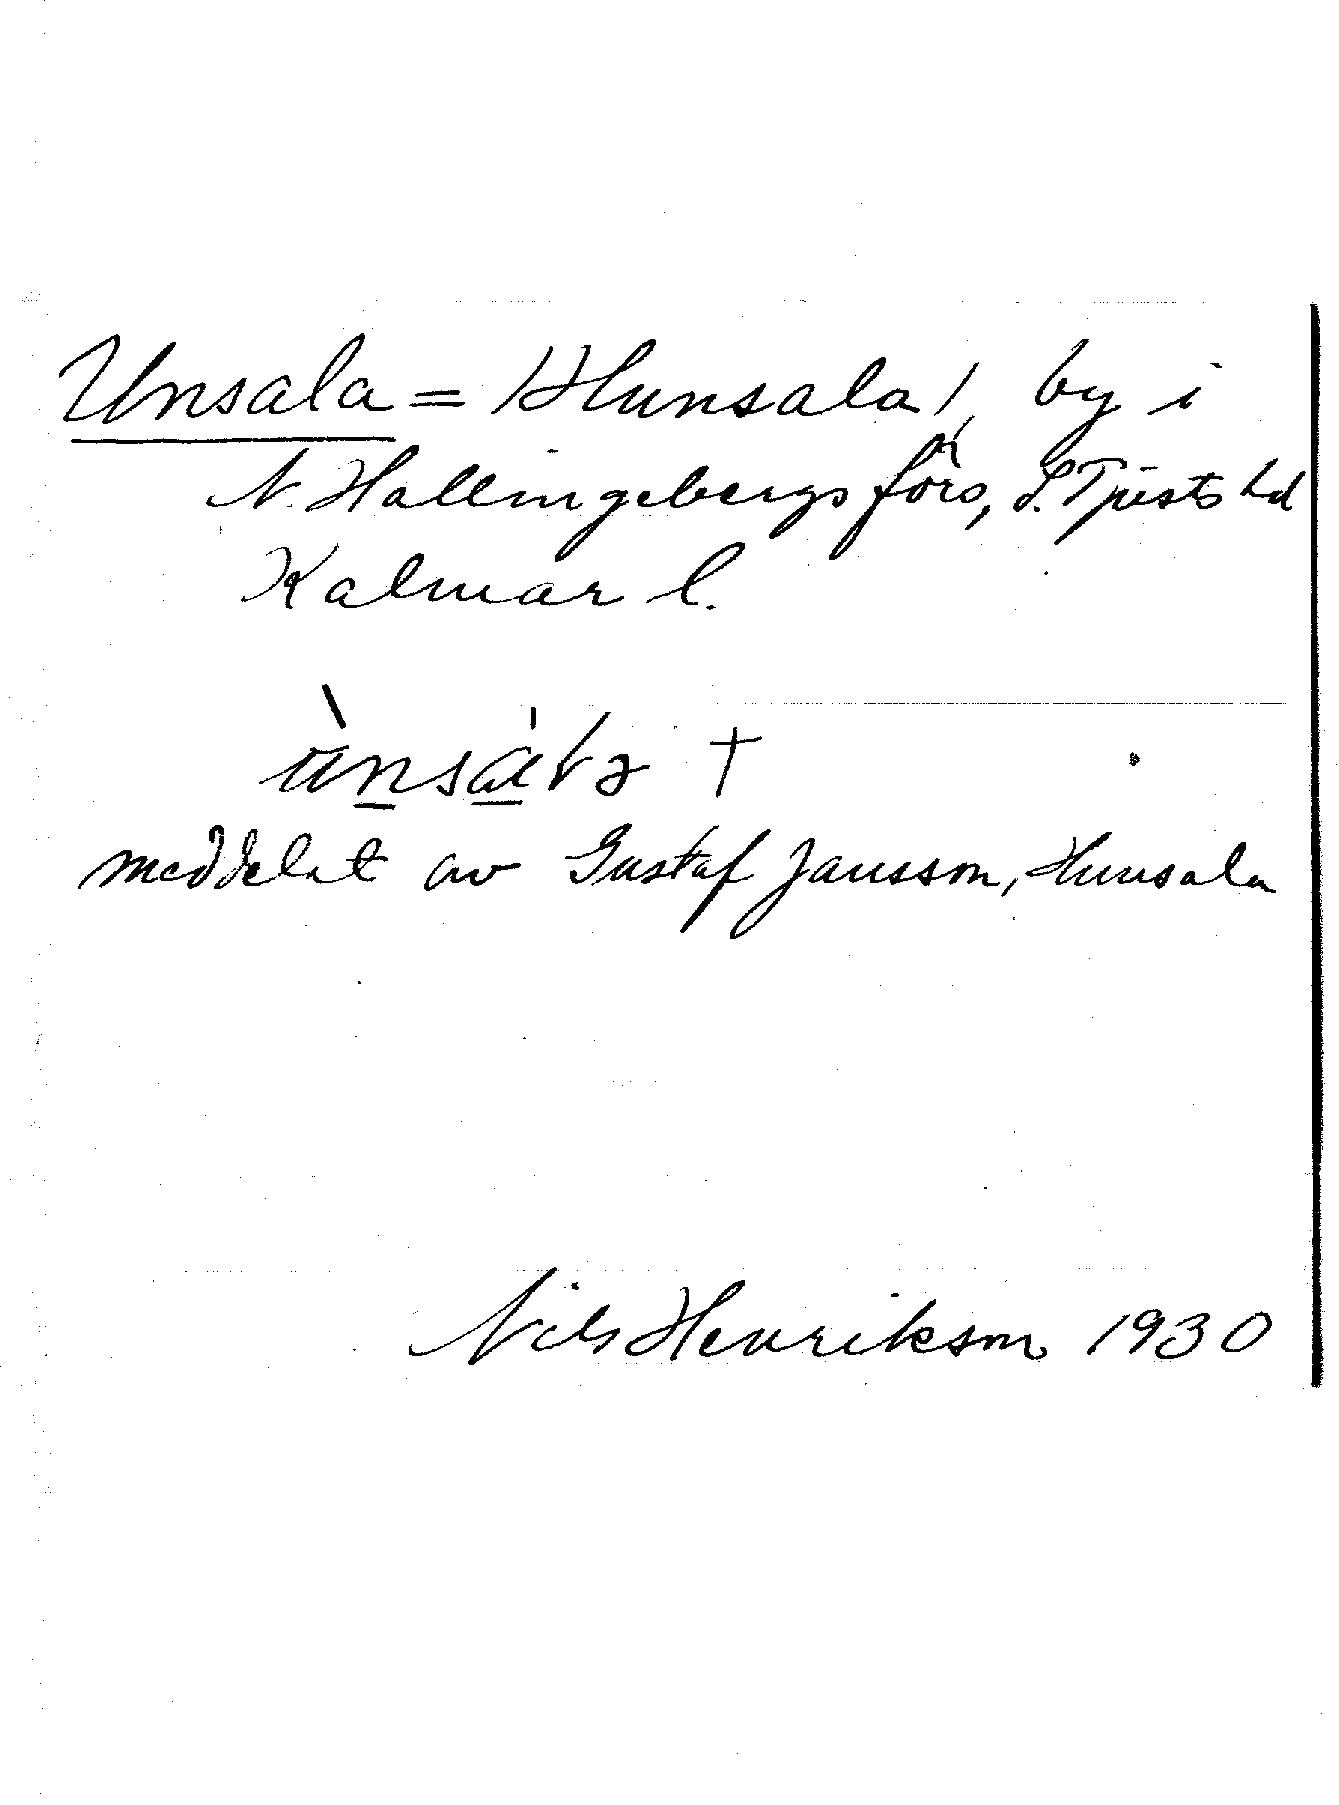 Unsala = /Hunsala/, by i
N. Hallingebergs förs, S. Tjusts hd
Kalmar l.
meddelat av Gustaf Jansson, Hunsala
Nils Henrikson 1930